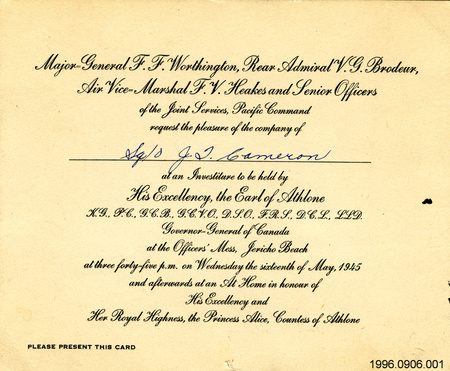 Major-General F. F. Worthington, Rear Admiral V. G. Brodeur,
Air Vice-Marshal F. V. Heakes and Senior Officers
of the Joint Services, Pacific Command
request the pleasure of the company of
J. T. Cameron
at an Investiture to be held by
His Excellency, the Earl of Athlone
K.G., P.C., G.C.B., G.C.V.O., D.S.O., F.R.S., D.C.L., LL.D.
Governor-General of Canada
at the Officers' Mess, Jericho Beach
at three forty-five p.m. on Wednesday the sixteenth of May, 1945
and afterwards at an At Home in honour of
His Excellency and
Her Royal Highness, the Princess Alice, Countess of Athlone
PLEASE PRESENT THIS CARD
1996.0906.001